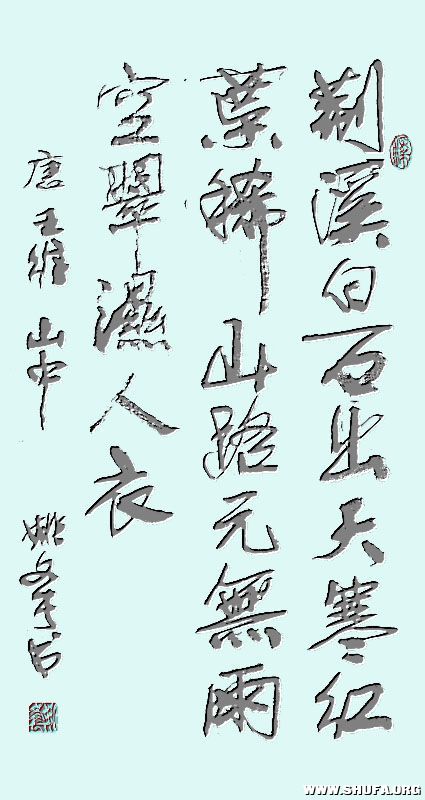 荆溪白石出天寒红
葉稀山路元無雨
空翠濕人衣
唐王維山中
姚 书
WWW.SHUFA.ORG